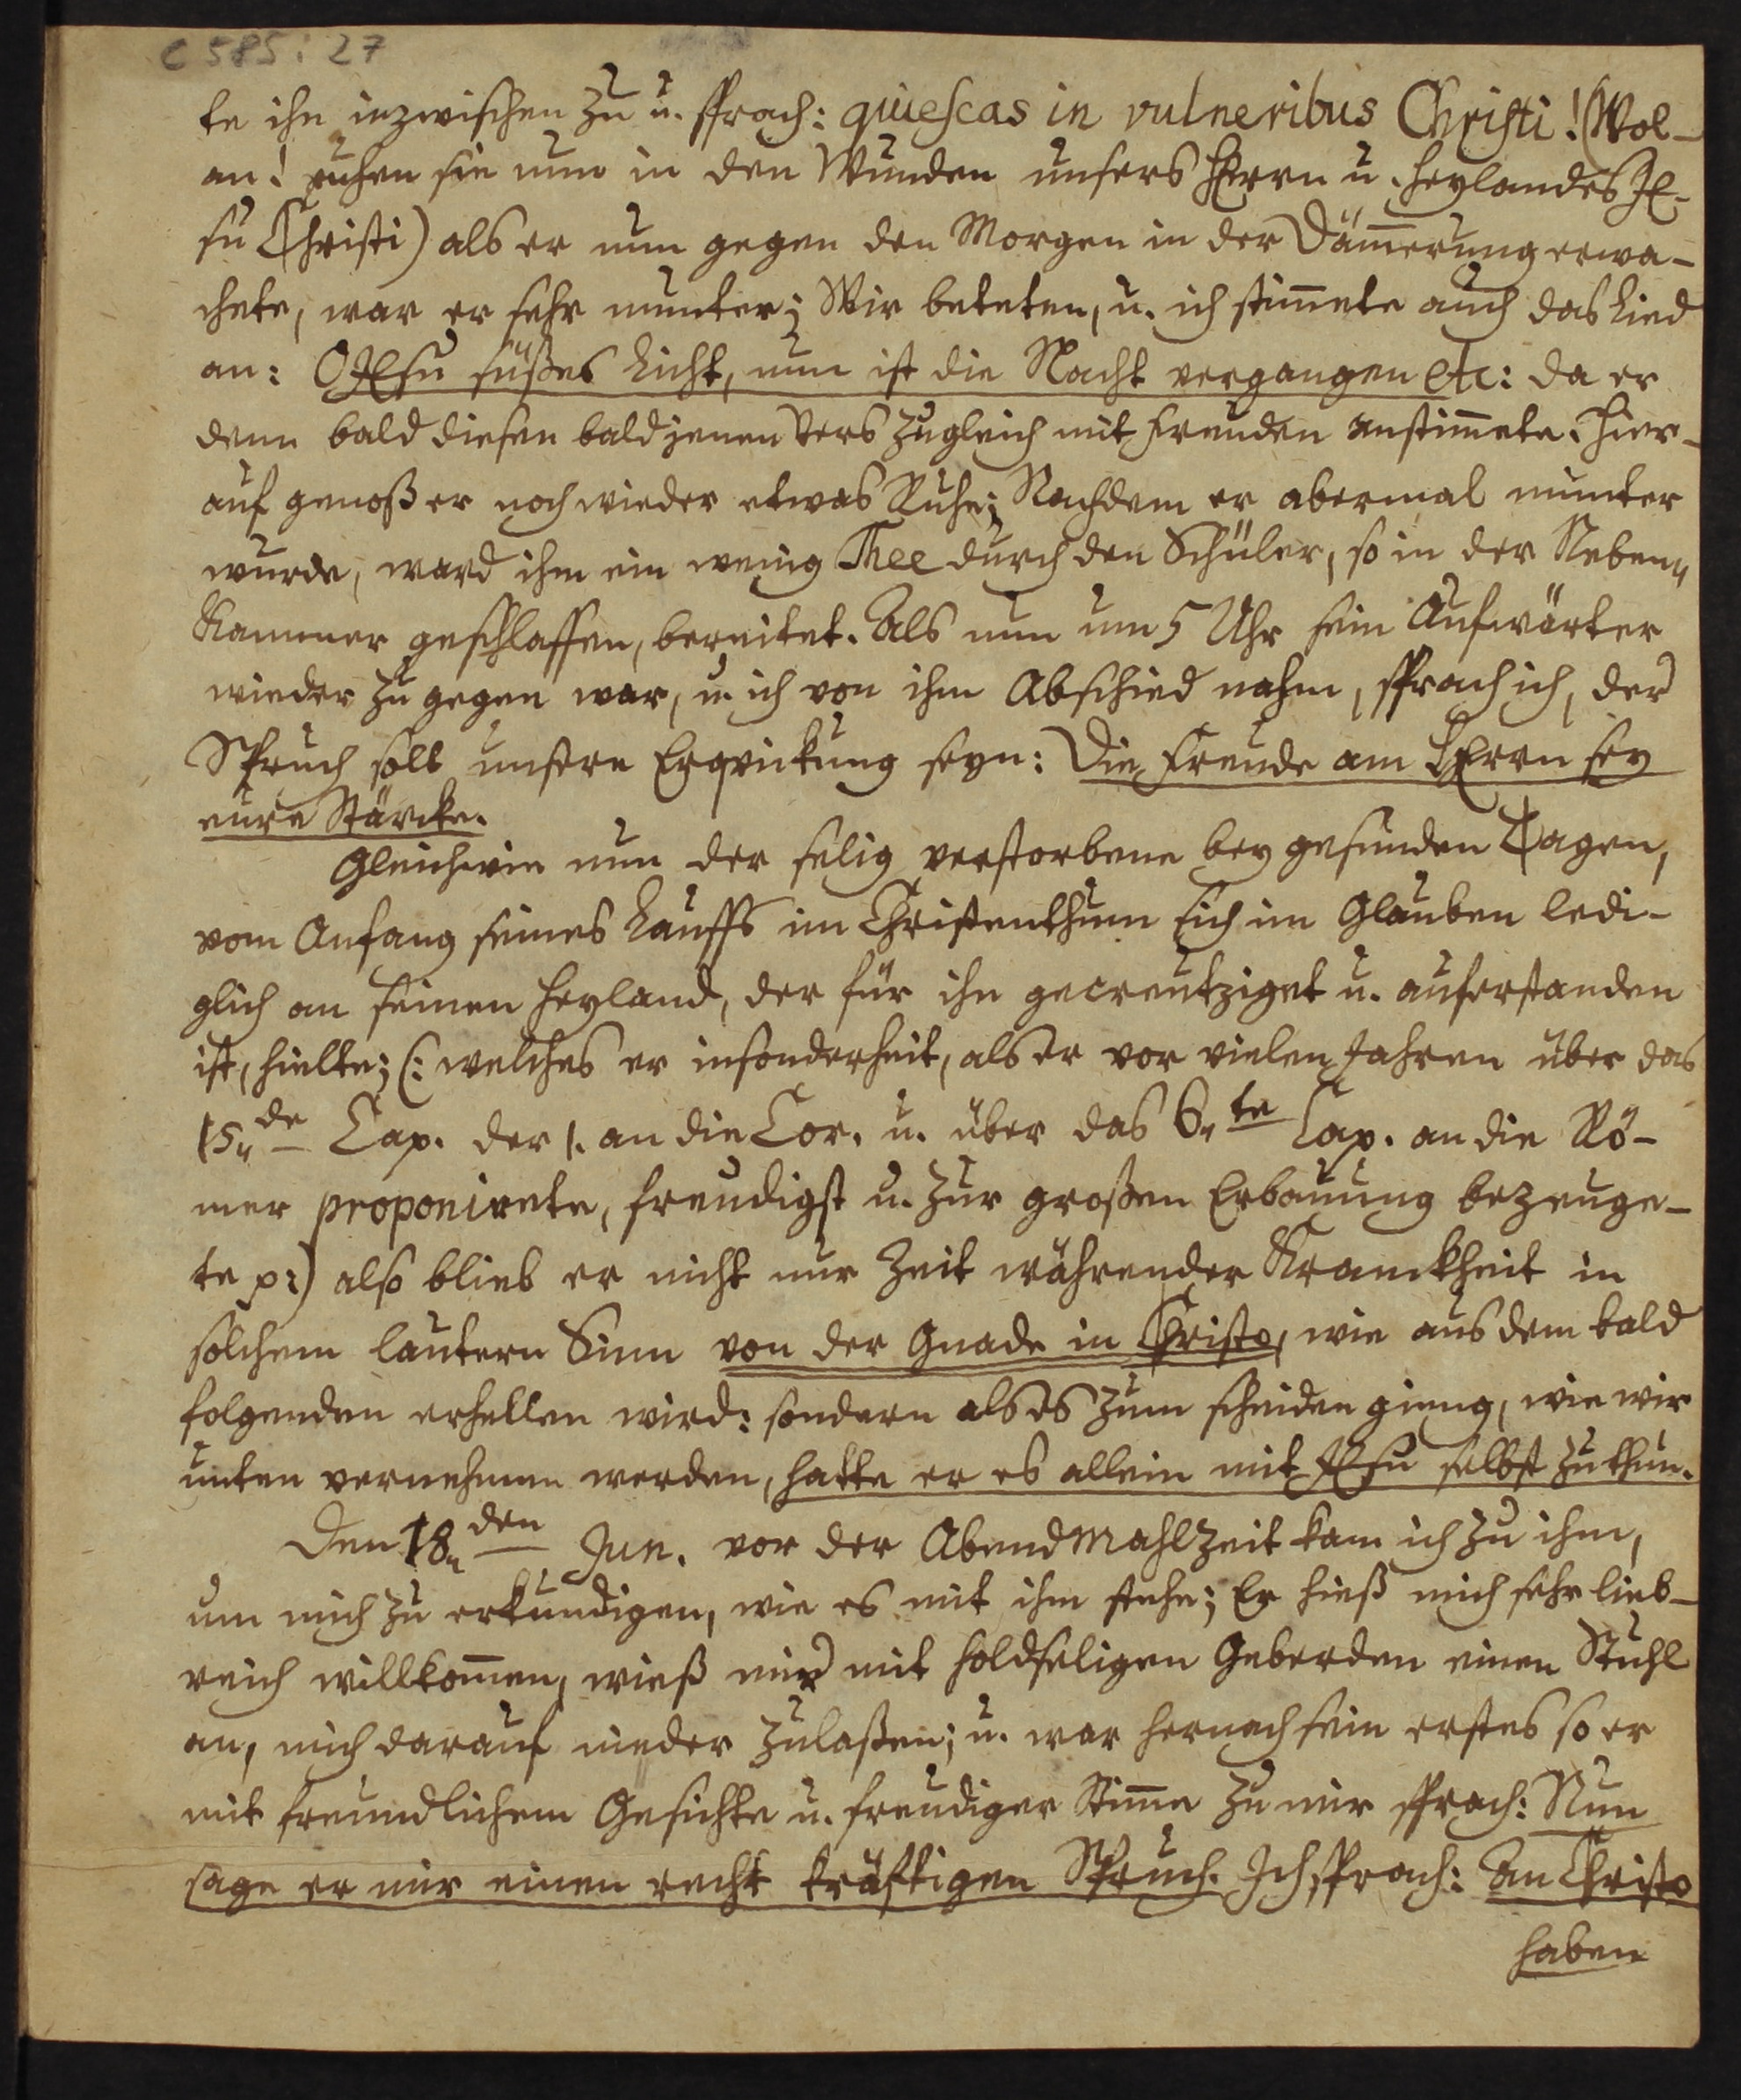 C 585 : 27
te ihn inzwischen zu u. sprach: quiescas in vulneribus Christi! (Wol-
an! ruhen sie nun in den Wunden unsers HErrn u. Heylandes JE-
su Christi) als er nun gegen den Morgen in der Däm̄erung erwa-
chete, war er sehr munter; Wir beteten, u. ich stim̄ete auch das Lied
an: O JEsu süßes Licht, nun ist die Nacht vergangen etc: da er
denn bald diesen bald jenen Vers zugleich mit Freuden anstim̄ete. Hier-
auf genoß er noch wieder etwas Ruhe; Nachdem er abermal munter
wurde, ward ihm ein wenig Thee durch den Schüler, so in der Neben„
Kammer geschlaffen, bereitet. Als nun um 5 Uhr sein Aufwärter
wieder zu gegen war, u. ich von ihm Abschied nahm, sprach ich, der
Spruch solt unsere Erqvickung seyn: Die Freude am HErrn sey
eure Stärcke.
Gleichwie nun der selig verstorbene bey gesunden Tagen,
vom Anfang seines Lauffs im Christenthum sich im Glauben ledi-
glich an seinen Heyland, der für ihn gecreutziget u. auferstanden
ist, hielte; (: welches er insonderheit, als er vor vielen Jahren über das
15„de Cap. der 1. an die Cor. u. über das 6„te Cap. an die Rö-
mer proponirete, freudigst u. zur großen Erbauung bezeuge-
te p:) also blieb er nicht nur Zeit währender Kranckheit in
solchem lautern Sinn von der Gnade in Christo, wie aus dem bald
folgenden erhellen wird: sondern als es zum scheiden gieng, wie wir
unten vernehmen werden, hatte er es allein mit JEsu selbst zu thun.
Den 18„den Jun. vor der AbendMahlzeit kam ich zu ihm,
um mich zu erkundigen, wie es mit ihm stehe; Er hieß mich sehr lieb-
reich willkom̄en, wieß mir mit holdseligen Geberden einen Stuhl
an, mich darauf nieder zulaßen; u. war hernach sein erstes so er
mit freundlichem Gesichte u. freudiger Stim̄e zu mir sprach: Nun
sage er mir einen recht kräftigen Spruch. Ich sprach: An Christo
haben